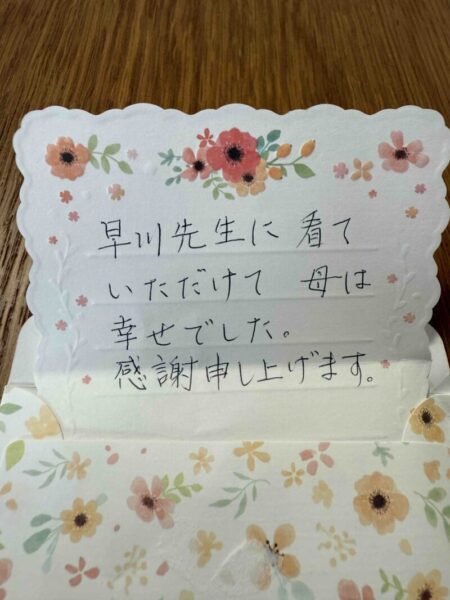 早川先生に 看て
いただけて 母は
幸せでした。
感謝申し上げます。